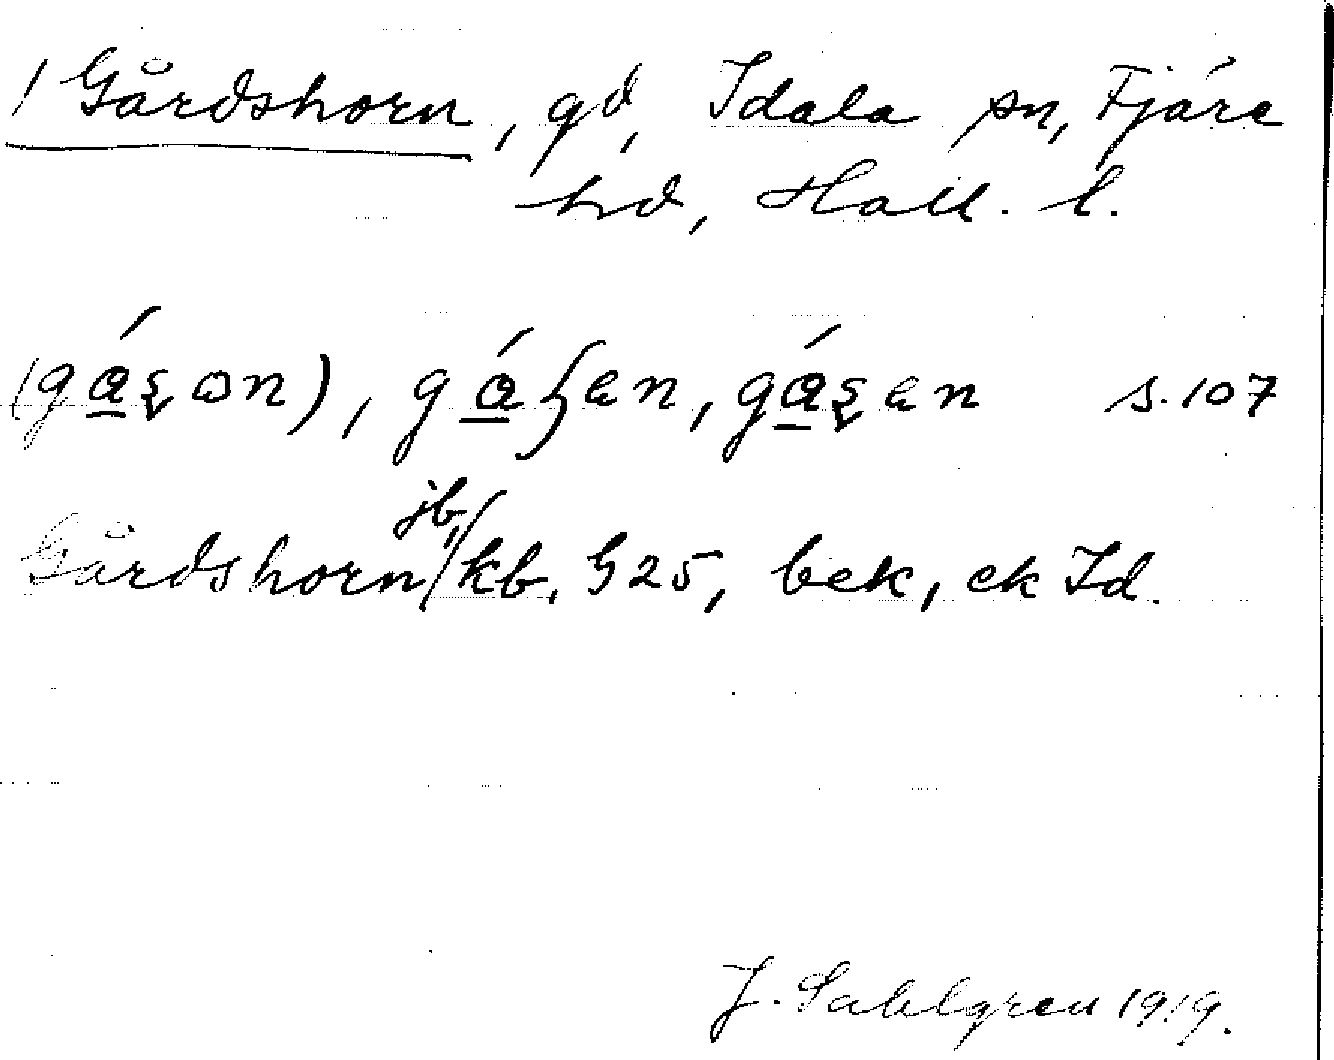 1 Gårdshorn, gd, Idala sn, Fjäre
hd, Hall. l.
(gá̲ʂɷn), gá̲ʃen, gá̲ʂen s. 107
Gårdshorn jb, kb. § 25, bek, ek Id.
J. Sahlgren 1919.